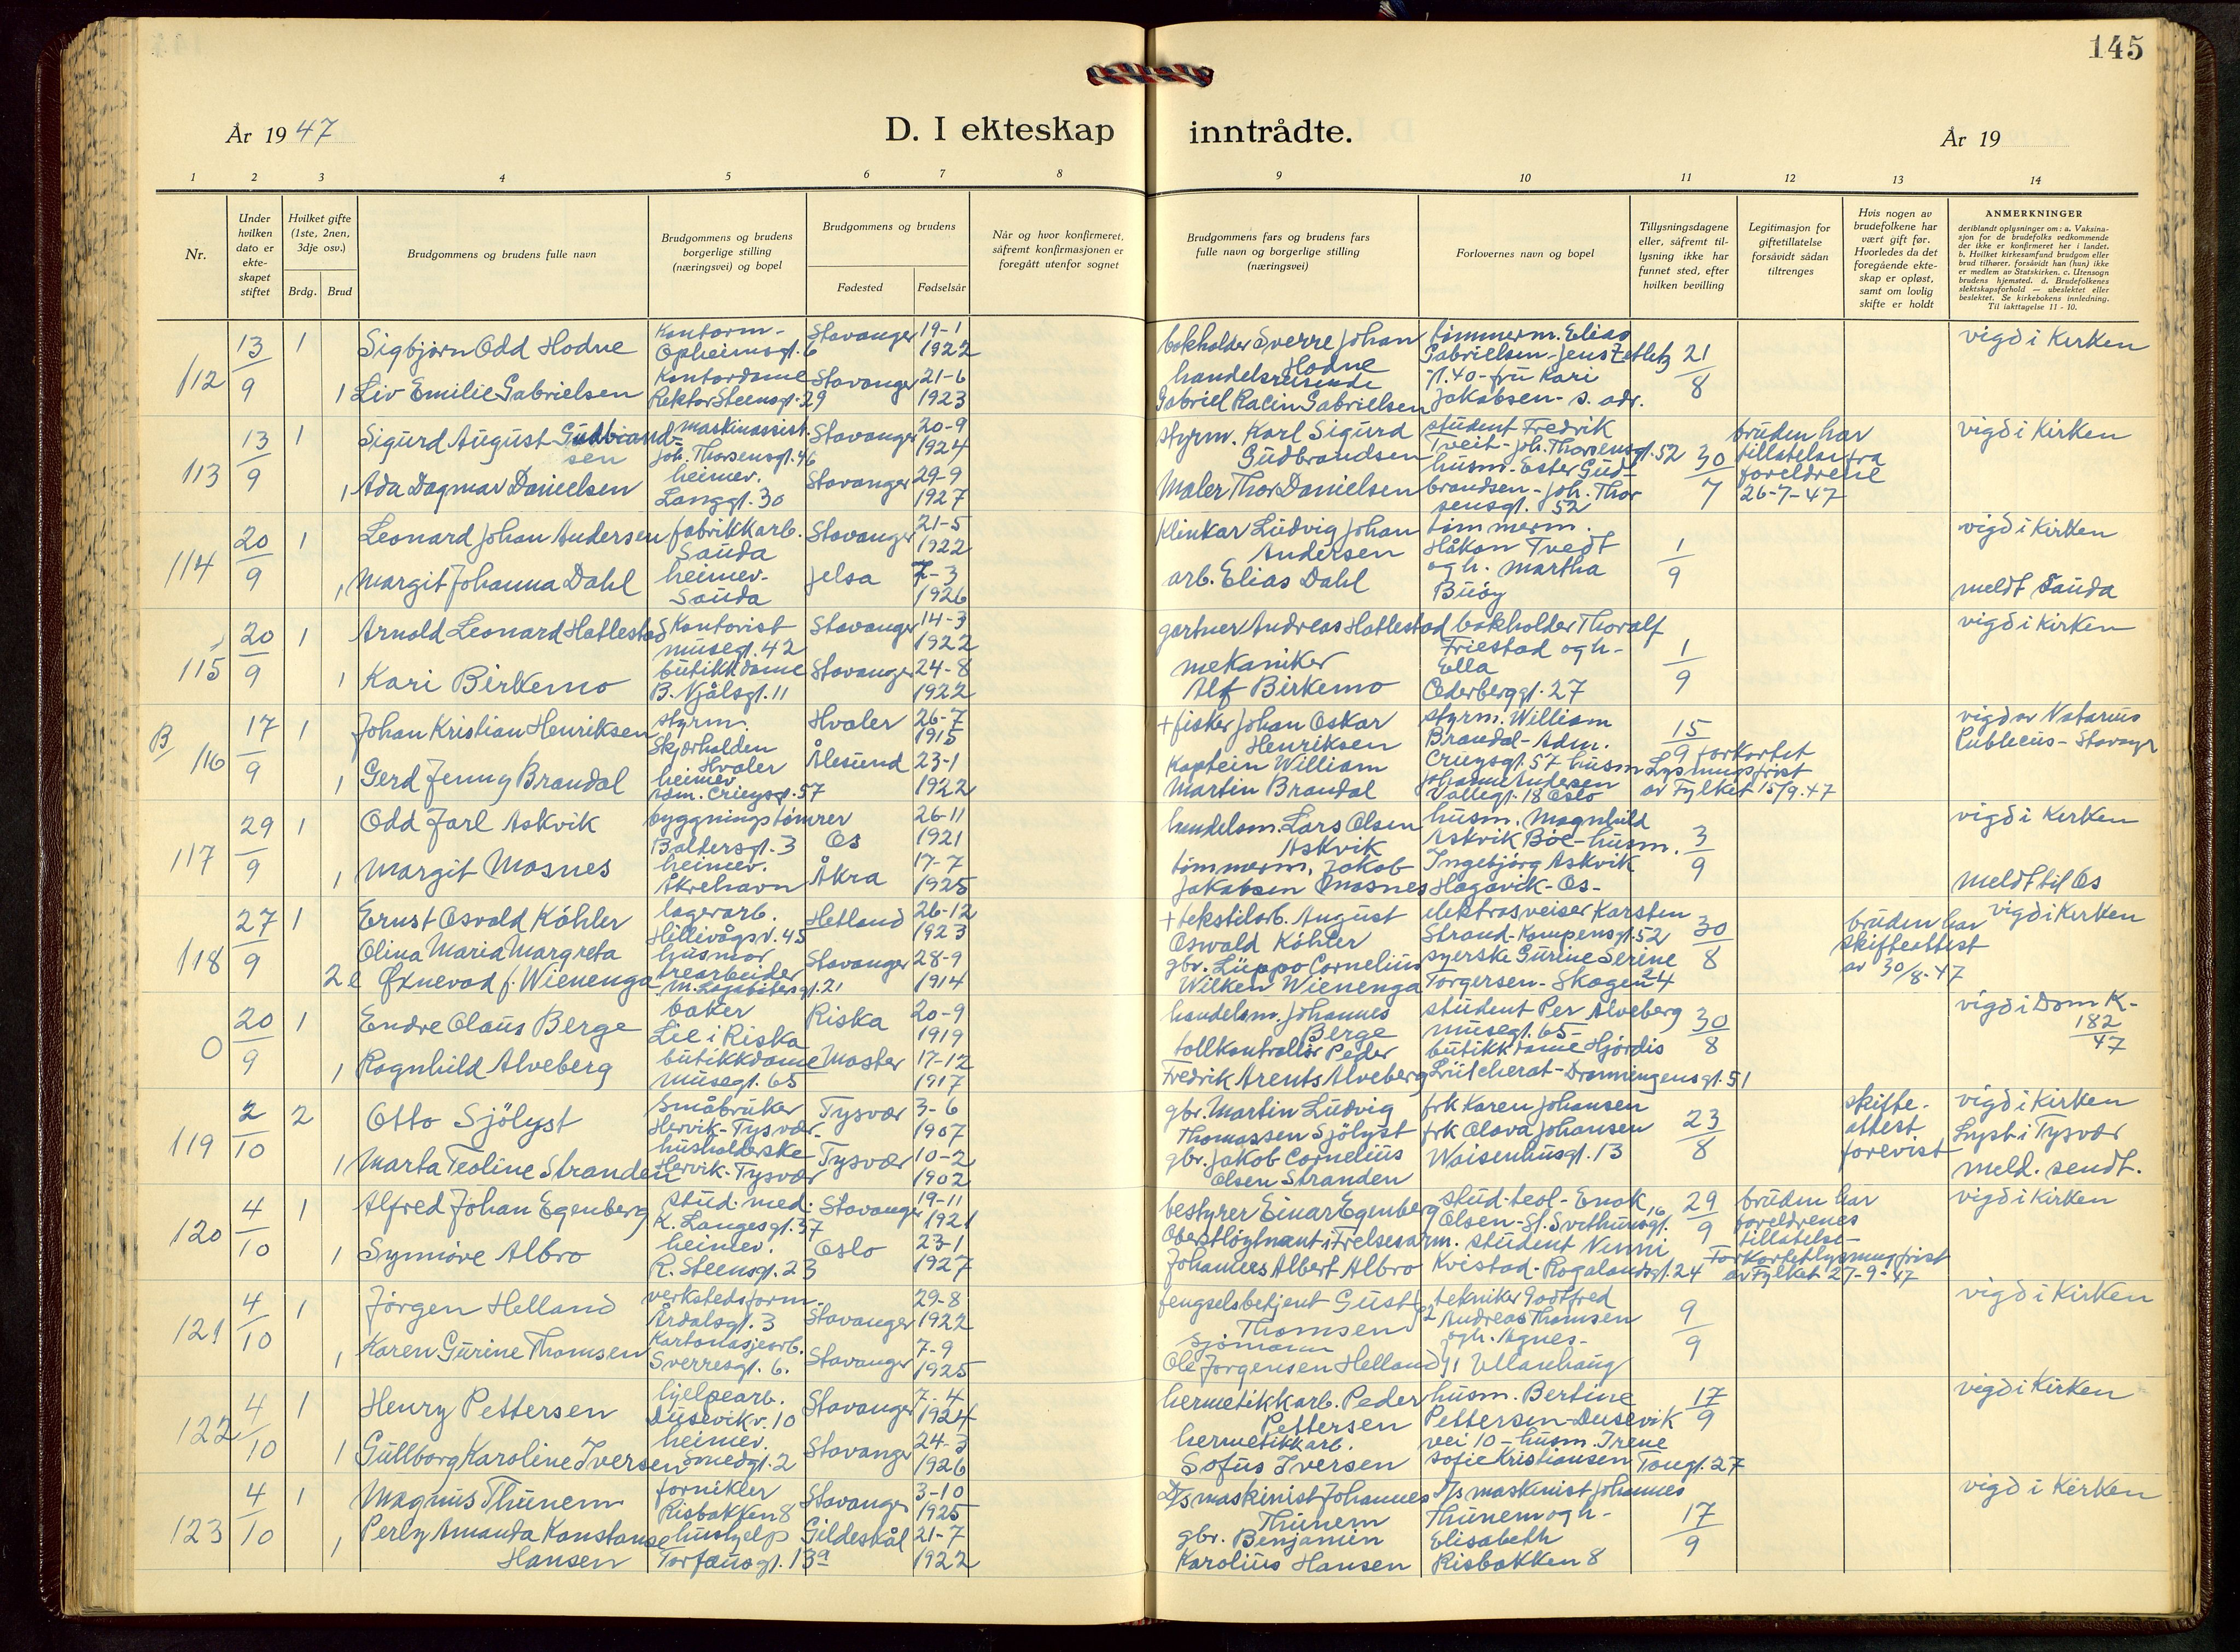 145
År 1947
D. I ekteskap inntrådte.
År 19
1 2 3 4 5 6 7 8 9 10 11 12 13 14
Nr.
Under hvilken dato er ekte-skapet stiftet
Hvilket gifte (1ste, 2nen, 3dje osv.)
Brdg. Brud
Brudgommens og brudens fulle navn
Brudgommens og brudens borgerlige stilling (næringsvei) og bopel
Brudgommens og brudens
Fødested
Fødselsår
Når og hvor konfirmeret, såfremt konfirmasjonen er foregått utenfor sognet
Brudgommens fars og brudens fars fulle navn og borgerlige stilling (næringsvei)
Forlovernes navn og bopel
Tillysningsdagene eller, såfremt til-lysning ikke har funnet sted, efter hvilken bevilling
Legitimasjon for giftetillatelse forsåvidt sådan tiltrenges
Hvis nogen av brudefolkene har vært gift før. Hvorledes da det foregående ekte-skap er opløst, samt om lovlig skifte er holdt
ANMERKNINGER
deriblandt oplysninger om: a. Vaksina-sjon for de brudefolks vedkommende der ikke er konfirmeret her i landet. b. Hvilket kirkesamfund brudgom eller brud tilhører, forsåvidt han (hun) ikke er medlem av Statskirken. c. Utensogn brudens hjemsted. d. Brudefolkenes slektskapsforhold — ubeslektet eller beslektet. Se kirkebokens innledning. Til iakttagelse 11 - 10.
112 13/9 1 Sigbjørn Odd Hodne Kontorm- Opheimsgt. 6 Stavanger 19-1 1922 bokholder Sverre Johan Hodne tømmerm. Elias Gabrielsen-Jens Zetlitz 21/8 vigd i Kirken
1 Liv Emilie Gabrielsen Kontordame Rektor Steensgt. 29 Stavanger 21-6 1923 handelsreisende Gabriel Racin Gabrielsen gt. 40-fru Kari Jakobsen- s. adr.
113 13/9 1 Sigurd August Gudbrandsen maskinassist. Joh. Thorsensgt. 46 Stavanger 20-9 1924 styrm. Karl Sigurd Gudbrandsen student Fredrik Tveit-Joh. Thorsensgt. 52 30/7 bruden har tillatelse fra foreldrene 26-7-47 vigd i Kirken
1 Ada Dagmar Danielsen heimev. Langgt. 30 Stavanger 29-9 1927 Maler Thor Danielsen husm-Ester Gudbrandsen-Joh. Thorsensgt. 52
114 20/9 1 Leonard Johan Andersen fabrikkarb. Sauda Stavanger 21-5 1922 Klinkar Ludvig Johan Andersen tømmerm. Håkon Tvedt 1/9 vigd i Kirken
1 Margit Johanna Dahl heimev. Sauda Jelsa 7-3 1926 arb. Elias Dahl og h. Martha Buøy meldt Sauda
115 20/9 1 Arnold Leonard Hatlestad Kontorist Musegt. 42 Stavanger 14-3 1922 gartner Andreas Hatlestad bokholder Thoralf Friestad og h- 1/9 vigd i Kirken
1 Kari Birkemo butikkdame B. Njålsgt. 11 Stavanger 24-8 1922 mekaniker Alf Birkemo Ella Cederberggt. 27
B 116 17/9 1 Johan Kristian Henriksen styrm. Skjærhalden Hvaler Hvaler 26-7 1915 + fisker Johan Oskar Henriksen styrm. William Brandal-Adm. 15/9 forkortet Lysningsfrist av Fylket 15/9.47 vigd av Notarius Publicus-Stavanger
1 Gerd Jenny Brandal heimev. Adm. Cruysgt. 57 Ålesund 23-1 1922 Kaptein William Martin Brandal Cruysgt. 57 husm Johanne Andersen Vallegt. 18 Oslo
117 29/9 1 Odd Jarl Askvik byggningstømrer Baldersgt. 3 Os 26-11 1921 handelsm. Lars Olsen Askvik husm. Magnhild Askvik Bøe-husm. 3/9 vigd i Kirken
1 Margit Mosnes heimev. Åkrehavn Åkra 17-7 1925 tømmerm. Jakob Jakobsen Mosnes Ingebjørg Askvik Hagavik-Os- meldt til Os
118 27/9 1 Ernst Osvald Köhler lagerarb. Hillevågsv. 45 Hetland 26-12 1923 + tekstilarb. August Oswald Köhler elektrosveiser Karsten Strand-Kampensgt. 52 30/8 bruden har skifteattest av 30/8-47 vigd i Kirken
2 e Olina Maria Margreta Øxnevad f. Wienenga husmor trearbeider M. Lagabøtersgt. 21 Stavanger 28-9 1914 gbr. Lüppo Cornelius Wilken Wienenga syerske Gurine Serine Torgersen-Skagen 24
0 20/9 1 Endre Olaus Berge baker Lie i Riska Riska 20-9 1919 handelsm. Johannes Berge student Per Alveberg Musegt. 65- 30/8 vigd i Dom K- 182/47
1 Ragnhild Alveberg butikkdame Musegt. 65 Moster 17-12 1917 tollkontrollør Peder Fredrik Arents Alveberg butikkdame Hjørdis Lütcherat-Dronningensgt. 51
119 2/10 2 Otto Sjölyst Småbruker Hervik-Tysvær- Tysvær 3-6 1907 gbr. Martin Ludvig Thomassen Sjölyst frk Karen Johansen frk Olava Johansen 23/8 skifte-attest forevist vigd i Kirken Lyst i Tysvær
1 Marta Teoline Stranden husholderske Hervik-Tysvær Tysvær 10-2 1902 gbr. Jakob Cornelius Olsen Stranden Waisenhusgt. 13 meld. sendt.
120 4/10 1 Alfred Johan Egenberg stud. med. K. Langesgt. 37 Stavanger 19-11 1921 bestyrer Einar Egenberg stud. teol- Enok Olsen-St. Svithunsgt. 16 29/9 bruden har foreldrenes tillatelse- vigd i Kirken
1 Synnöve Albro heimev. R. Steensgt. 23 Oslo 23-1 1927 Oberstløytnant i Frelsesarm. Johannes Albert Albro student Nenni Kvistad-Rogalandsgt. 24 Forkortet lysningsfrist av Fylket 27-9-47
121 4/10 1 Jørgen Helland verkstedsform. Årdalsgt. 3 Stavanger 29-8 1922 fengselsbetjent Gust Thomsen 2 tekniker Godtfred Andreas Thomsen 9/9 vigd i Kirken
1 Karen Gurine Thomsen Kartonasjearb. Sverresgt. 6. Stavanger 7-9 1925 Sjømann Ole Jørgensen Helland 1 og h. Agnes- Ullanhaug
122 4/10 1 Henry Pettersen hjelpearb. Dusevikv. 10 Stavanger 7-4 1924 hermetikkarb. Peder Pettersen husm. Bertine Pettersen-Dusevik 17/9 vigd i Kirken
1 Gullborg Karoline Iversen heimev. Smedgt. 2 Stavanger 24-3 1926 hermetikkarb. Sofus Iversen vei 10-husm. Irene Sofie Kristiansen Tougt. 27
123 4/10 1 Magnus Thunem fornikler Risbakken 8 Stavanger 3-10 1925 D/s maskinist Johannes Thunem D/s maskinist Johannes Thunem og h- 17/9 vigd i Kirken
1 Perly Amanda Konstanse Hansen hushjelp Torfæusgt. 13a Gildeskål 21-7 1922 gbr. Benjamin Karolius Hansen Elisabeth Risbakken 8